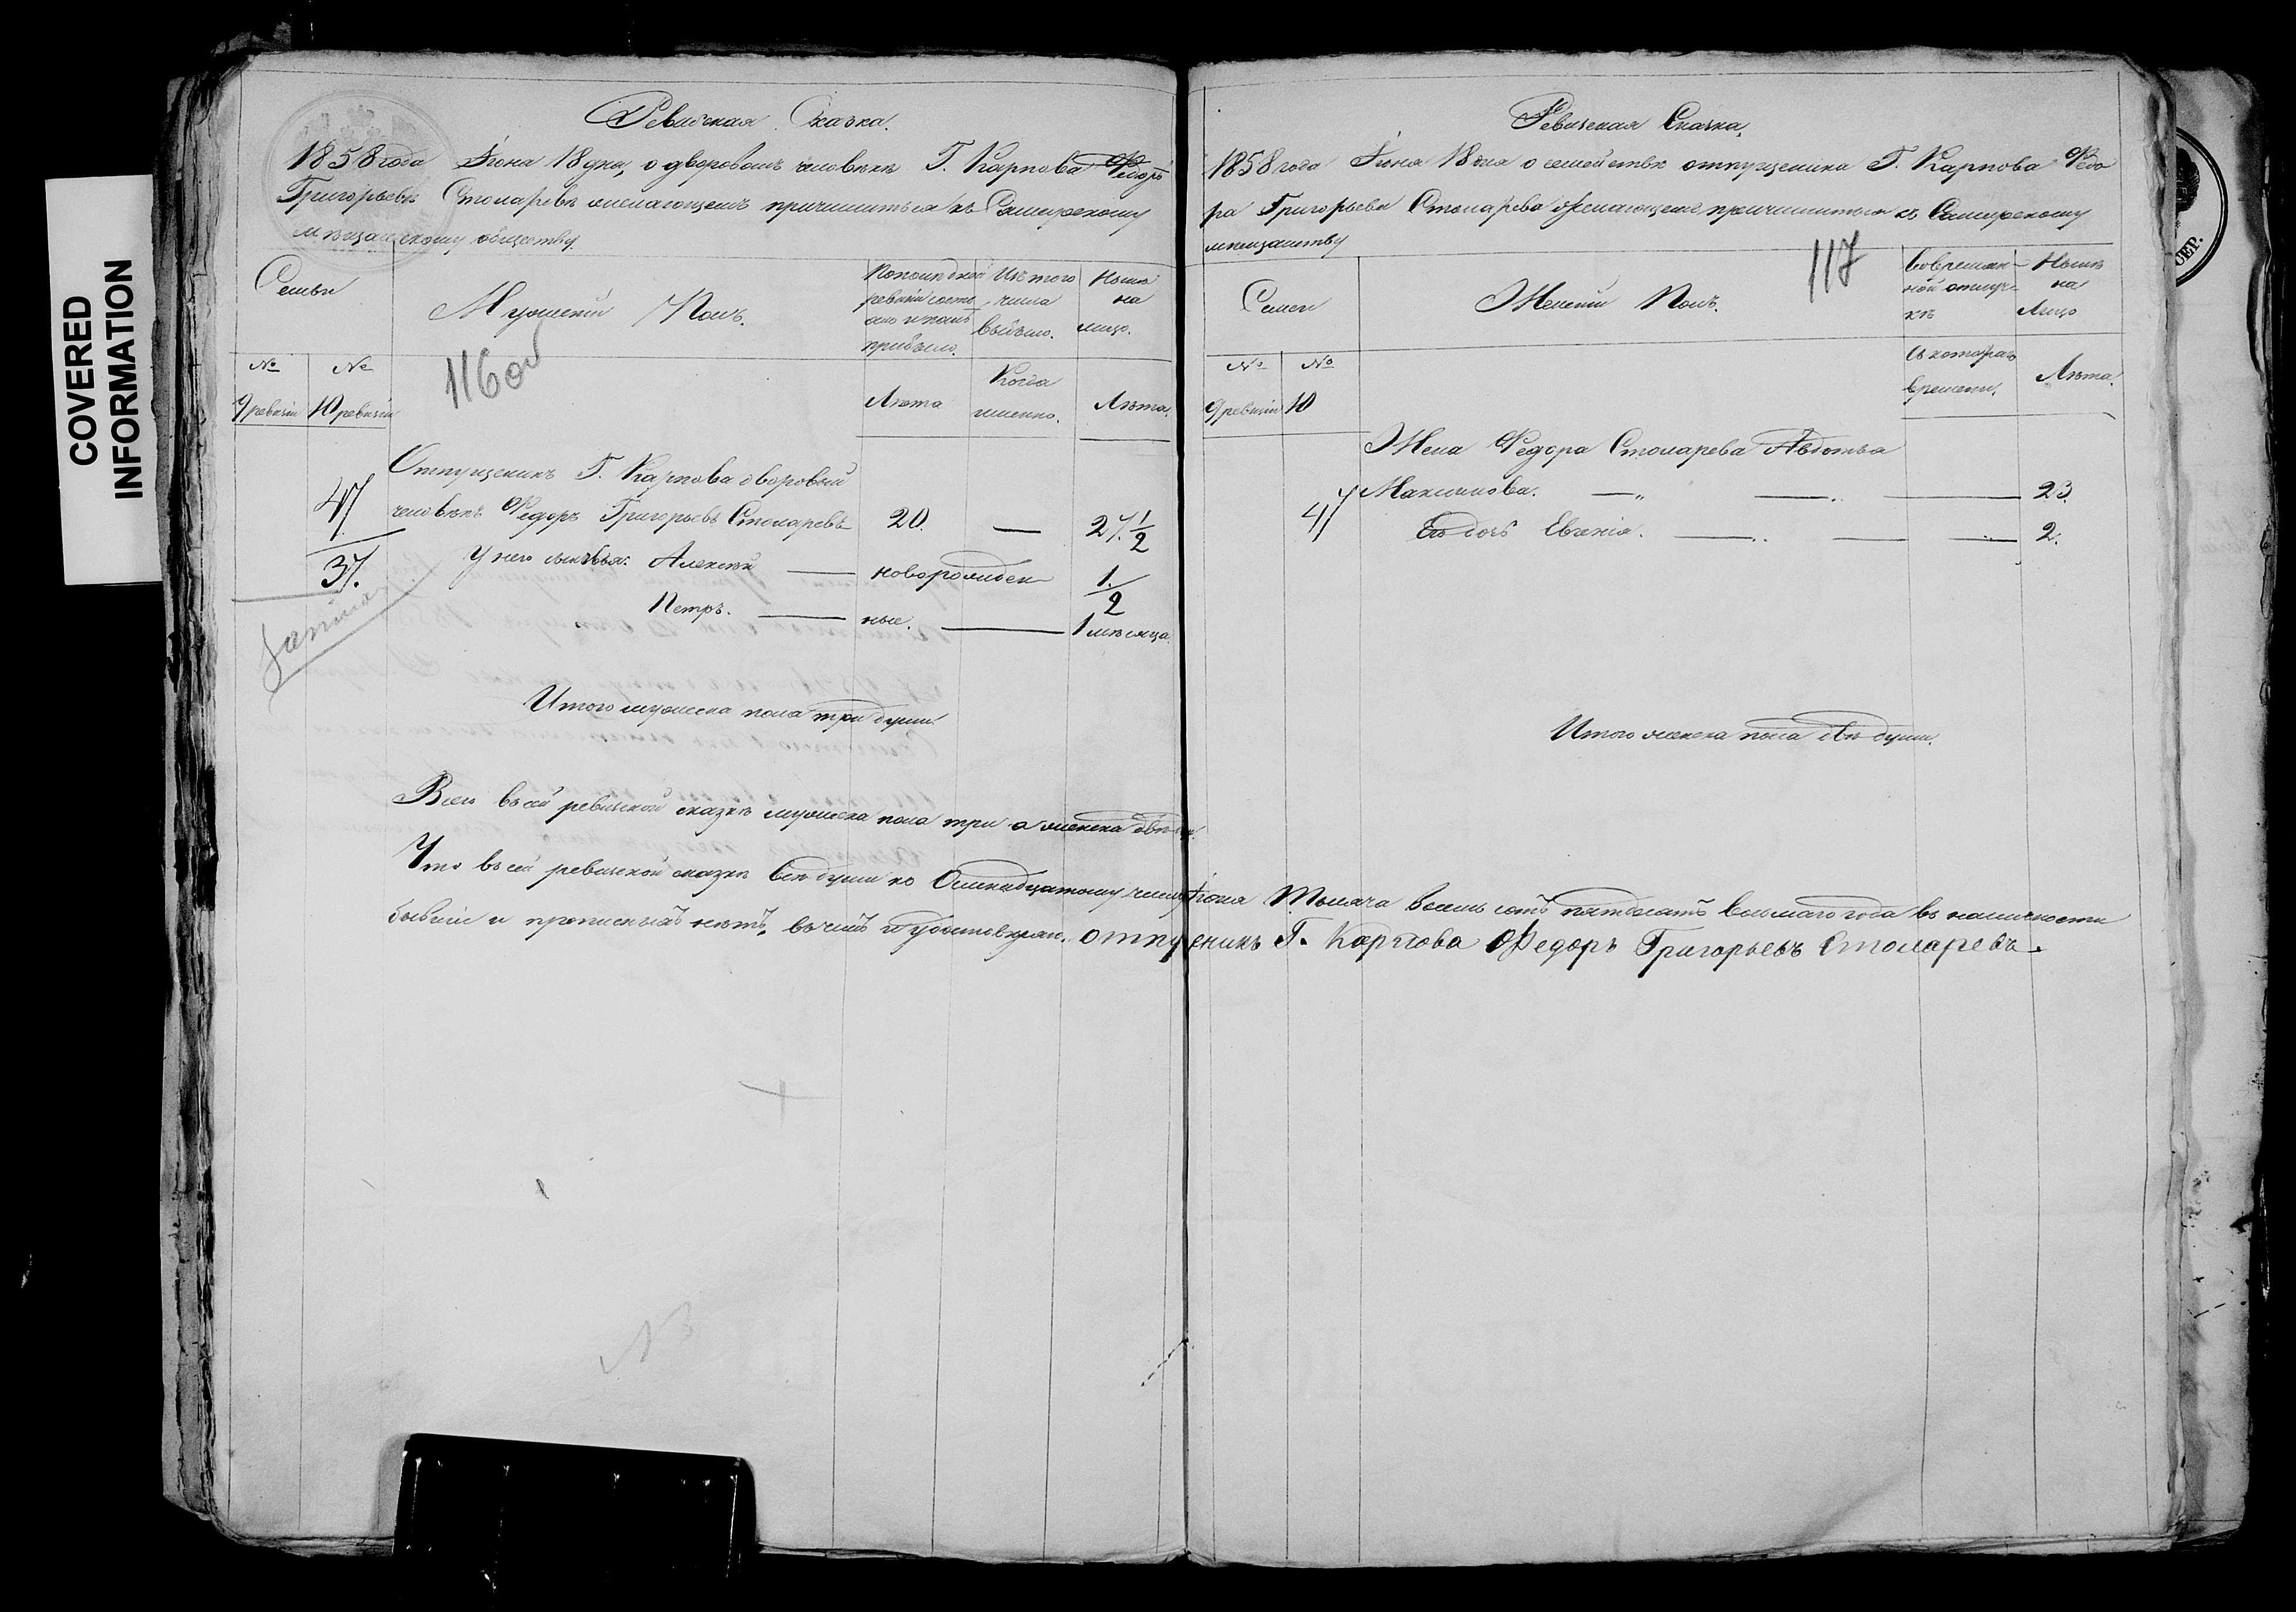 COVERED
INFORMATION
Ревизская Сказка.
1858 года Іюня 18 дня, о дворовомъ человѣкѣ Г. Карпова Федорѣ
Григорьевѣ Столяревѣ желающемъ причислиться къ Самарскому
мѣщанскому обществу.
Семьи
Мужескій Полъ.
По последней
ревизіи состо
яло и послѣ
прибыло.
Изъ того
числа
выбыло.
Нынѣ
на
лицо.
№ №
116 об
9 ревизіи 10 ревизіи
Лѣта
Когда
именно.
Лѣта.
Отпущеникъ Г. Карпова дворовый
47 человѣкъ Федоръ Григорьевъ Столяревъ 20. — 27 1/2
37. У него сыновья. Алексѣй — новорожден 1/2
Петръ. — ные. — 1 мѣсяца.
Итого мужеска пола три души.
Всего въ сей ревизской сказкѣ мужеска пола три а женска двѣ
Ревизская Сказка.
1858 года Іюня 18 дня о семействѣ отпущеника Г. Карпова Федо
ра Григорьева Столярева желающаго причислиться къ Самарскому
мѣщанству
117
Семьи
Женскій Полъ.
Во времян-
ной отлуч-
кѣ
Нынѣ
на
Лицо
№ №
9 ревизіи 10
Съ котораго
времени.
Лѣта.
Жена Федора Столярева Авдотья
47 Максимова. — „ — . — 23.
Ея дочь Евгенія. — .. — — 2.
Итого женска пола двѣ души.
Что въ сей ревизской сказкѣ всѣ души по Осмнадцатому числу Іюня Тысяча восемь сотъ пятьдесятъ восьмаго года въ наличности
бывшіе и прописныхъ нѣтъ, въ чемъ и удостовѣряю. отпущеникъ Г. Карпова Федоръ Григорьевъ Столяревъ.